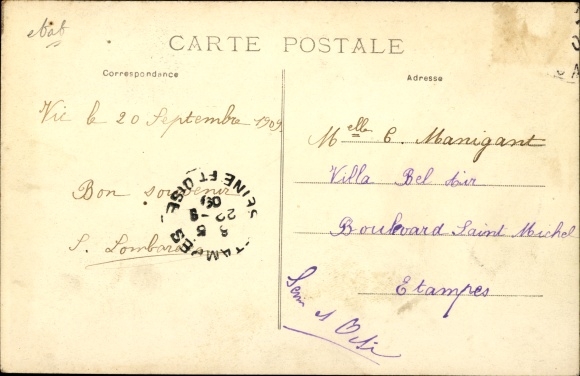 CARTE POSTALE
Correspondance
Vic le 20 Septembre 1909
Bon souvenir
S. Lombard
Adresse
Melle C. Manigant
Villa Bel Air
Boulevard Saint Michel
Etampes
Seine et Oise
ETAMPES
SEINE ET OISE
22-9
09